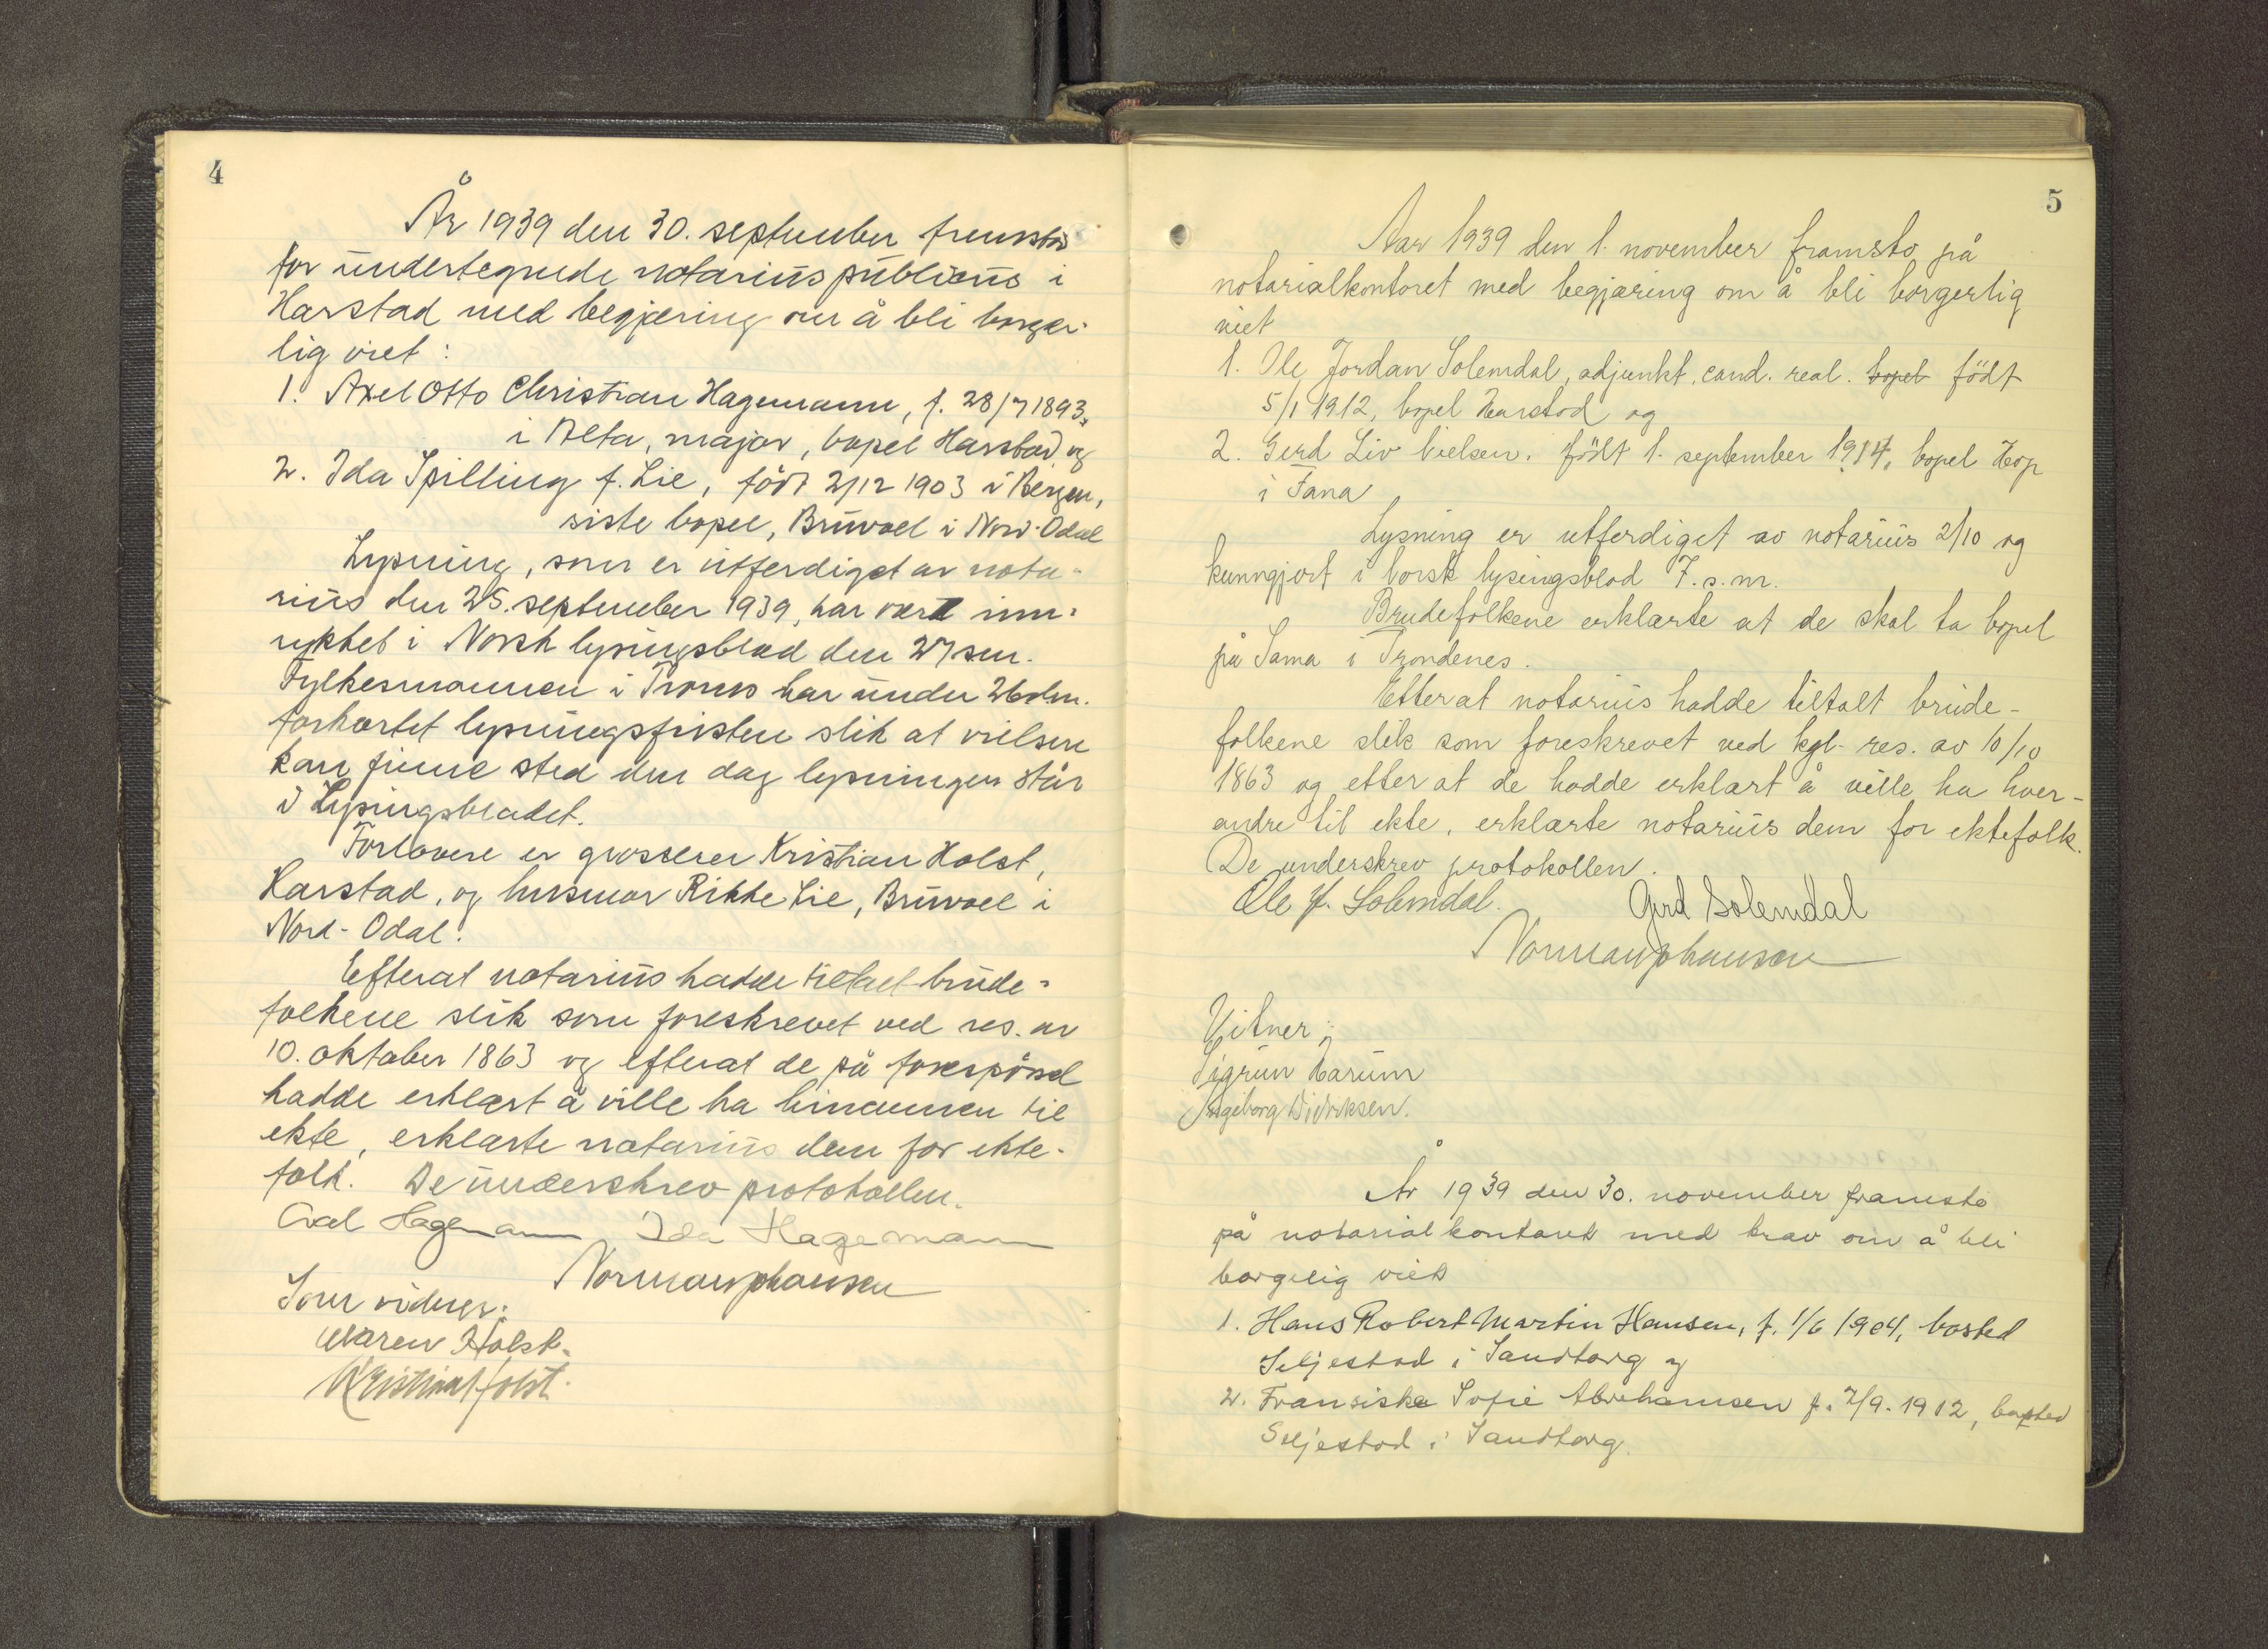 4
År 1939 den 30. september fremsto
for undertegnede notarius publicus i
Harstad med begjæring om å bli borger-
lig viet:
1. Axel Otto Christian Hagemann, f. 28/7 1893.
i Alta, major, bopel Harstad og
2. Ida Spilling f. Lie, född 2/12 1903 i Bergen,
siste bopel, Bruvoll i Nord-Odal
Lysning, som er utferdiget av nota-
rius den 25. september 1939, har vært inn-
rykket i Norsk lysingsblad den 27 sm.
Fylkesmannen i Troms har under 26 dm.
forkortet lysningsfristen slik at vielsen
kan finne sted den dag lysningen står
i Lysingsbladet.
Forlovere er grosserer Kristian Holst,
Harstad, og husmor Rikke Lie, Bruvoll i
Nord-Odal.
Efterat notarius hadde tiltalt brude-
folkene slik som foreskrevet ved res. av
10. oktober 1863 og efterat de på forespörsel
hadde erklært å ville ha hinannen til
ekte, erklærte notarius dem for ekte-
folk. De underskrev protokollen.
Axel Hagemann Ida Hagemann
Normann Johansen
Som vidner:
Maren Holst.
Kristian Holst.
5
Aar 1939 den 1. november framsto på
notarialkontoret med begjæring om å bli borgerlig
viet
1. Ole Jordan Solemdal, adjunkt, cand. real. bopel födt
5/1 1912, bopel Harstad og
2. Gerd Liv Nielsen. födt 1. september 1914, bopel Hop
i Fana
Lysning er utferdiget av notarius 2/10 og
kunngjort i Norsk lysingsblad 7. s.m.
Brudefolkene erklærte at de skal ta bopel
på Sama i Trondenes.
Etterat notarius hadde tiltalt brude-
folkene slik som foreskrevet ved kgl. res. av 10/10
1863 og etter at de hadde erklært å ville ha hver-
andre til ekte, erklærte notarius dem for ektefolk.
De underskrev protokollen.
Ole J. Solemdal. Gerd Solemdal
Normann Johansen
Vitner:
Sigrun Harum
Ingeborg Didriksen.
År 1939 den 30. november framsto
på notarialkontoret med krav om å bli
borgelig viet
1. Hans Robert Martin Hansen, f. 1/6 1904, bosted
Seljestad i Sandtorg og
2. Fransiska Sofie Abrahamsen f. 7/9. 1912, bosted
Seljestad i Sandtorg.